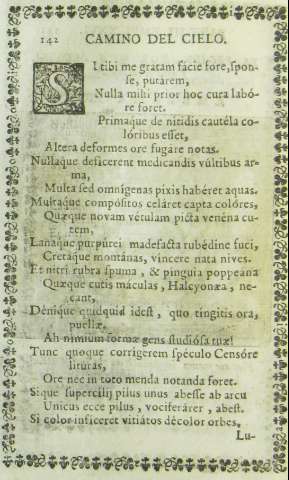 142 CAMINO DEL CIELO.
SI tibi me gratam facie fore, spon-
se, putárem,
Nulla mihi prior hoc cura labó-
re foret.
Primaque de nitidis cautéla co-
lóribus esset,
Altera deformes ore fugare notas.
Nullaque deficerent medicandis vúltibus ar-
ma,
Multa sed omnígenas pixis habéret aquas.
Multaque compósitos celáret capta colóres,
Quæque novam vétulam picta venéna cu-
tem,
Lanaque purpúrei madefacta rubédine fuci,
Cretaque montánas, vincere nata nives.
Et nitri rubra spuma, & pinguia poppeana
Quæque cutis máculas, Halcyonæa, ne-
cant,
Dénique quidquid idest, quo tingitis ora,
puellæ,
Ah nimium formæ gens studiósa tuæ!
Tunc quoque corrigerem spéculo Censóre
lituras,
Ore nec in toto menda notanda foret.
Sique supercilij pilus unus abesse ab arcu
Unicus ecce pilus, vociferárer, abest.
Si color inficeret vitiátos décolor orbes,
Lu-